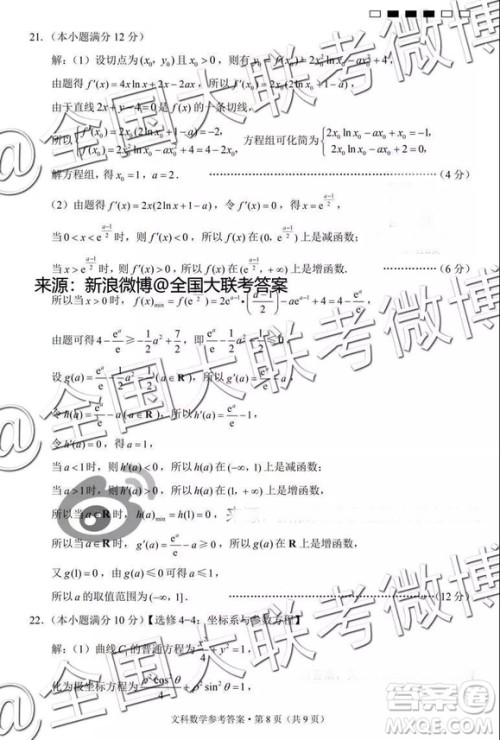 21.（本小题满分 12 分）
解：（1）设切点为(x₀, y₀)且 x₀ > 0，则有 y₀ = f(x₀) = 2x₀² ln x₀ − ax₀² + 4，
由题得 f′(x) = 4x ln x + 2x − 2ax，所以 f′(x) = 2x(2ln x + 1 − a)，
由于直线 2x + y − 4 = 0 是 f(x) 的一条切线，
所以 { f′(x₀) = 2x₀(2ln x₀ + 1 − a) = −2, f(x₀) = 2x₀² ln x₀ − ax₀² + 4 = 4 − 2x₀, 方程组可化简为 { 2x₀ ln x₀ − ax₀ + x₀ = −1, 2x₀ ln x₀ − ax₀ = −2,
解方程组，得 x₀ = 1，a = 2. ………（4 分）
（2）由题得 f′(x) = 2x(2ln x + 1 − a)，令 f′(x) = 0，得 x = e^((a−1)/2)，
当 0 < x < e^((a−1)/2) 时，则 f′(x) < 0，所以 f(x) 在 (0, e^((a−1)/2)) 上是减函数；
当 x > e^((a−1)/2) 时，则 f′(x) > 0，所以 f(x) 在 (e^((a−1)/2), +∞) 上是增函数. ………（6 分）
来源：新浪微博@全国大联考答案
所以当 x > 0 时，f(x)min = f(e^((a−1)/2)) = 2e^(a−1)·((a−1)/2) − ae^(a−1) + 4 = 4 − e^a/e，
由题可得 4 − e^a/e ≥ −1/2 a² + 7/2，即
设 g(a) = e^a/e − 1/2 a² − 1/2 (a∈R)，所以 g′(a) = e^a/e − a，
令 h(a) = e^a/e − a (a∈R)，所以 h′(a) = e^a/e − 1，
令 h′(a) = 0，得 a = 1，
当 a < 1 时，则 h′(a) < 0，所以 h(a) 在 (−∞, 1) 上是减函数；
当 a > 1 时，则 h′(a) > 0，所以 h(a) 在 (1, +∞) 上是增函数，
所以当 a∈R 时，h(a)min = h(1) = 0，
所以当 a∈R 时，g′(a) = e^a/e − a ≥ 0，所以 g(a) 在 R 上是增函数，
又 g(1) = 0，由 g(a) ≤ 0 可得 a ≤ 1，
所以 a 的取值范围为 (−∞, 1]. ………（12 分）
22.（本小题满分 10 分）【选修 4−4：坐标系与参数方程】
解：（1）曲线 C₁ 的普通方程为 x²/4 + y² = 1，
化为极坐标方程为 ρ²cos²θ/4 + ρ²sin²θ = 1，
文科数学参考答案·第 8 页（共 9 页）
@全国大联考微博
@全国大联考微博
@全国大联考微博
答案圈
MXQE.COM